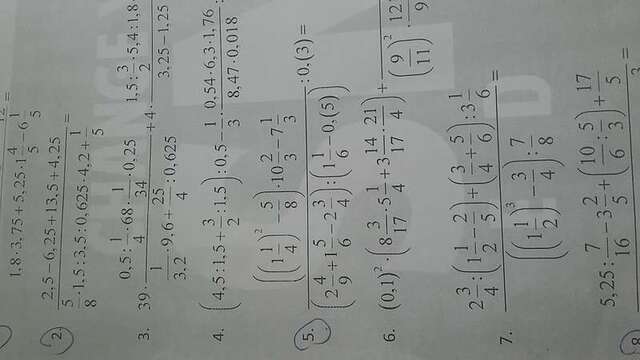 1,8·3,75+5,25·1 4/5 −6 1/5 =
2. (2,5−6,25+13,5+4,25)/(5/8 ·1,5:3,5:0,625·4,2+ 1/5) =
3. 39· (0,5: 1/4 ·68· 1/34 ·0,25)/(1/3,2 ·9,6+ 25/4 :0,625) +4· (1,5: 3/2 :5,4:1,8·)/(3,25−1,25)
4. (4,5:1,5+ 3/2 :1,5):0,5− 1/3 · (0,54·6,3·1,76)/(8,47·0,018) :
5. (((1 1/4)² − 5/8)·10 2/3 −7 1/3)/((2 4/9 +1 5/6 −2 3/4):(1 1/6 −0,(5))) :0,(3)=
6. (0,1)² ·(8 3/17 ·5 1/4 +3 14/17 · 21/4)+ /((9/11)² · 12/9
7. (2 3/4 :(1 1/2 − 2/5)+(3/4 + 5/6):3 1/6)/(((1 1/2)³ − 3/4): 7/8) =
8. 5,25: 7/16 −3 2/5 +(10/6 : 5/3)+ 17/5 =